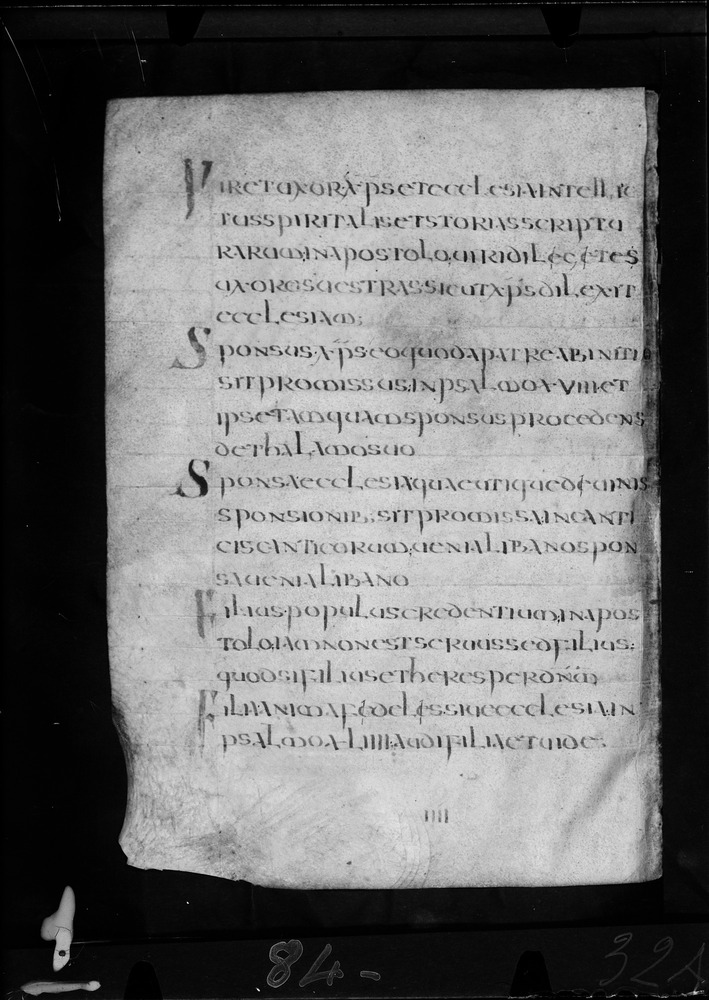 VIRETUXORXPSETECCLESIAINTELLIC
TUSSPIRITALISETSTORIASSCRIPTU
RARUMINAPOSTOLO,UIRIDILEGETES
UXORESUESTRASSICUTXPSDILEXIT
ECCLESIAM;
SPONSUS·XPSEOQUODAPATREABINITIO
SITPROMISSUS;INPSALMOX·VIIIET
IPSETAMQUAMSPONSUSPROCEDENS
DETHALAMOSUO
SPONSAECCLESIAQUAEUTIQUEDEUINIS
SPONSIONIB;SITPROMISSAINCANTI
CISCANTICORUM;UENIALIBANOSPON
SAUENIALIBANO
FILIUSPOPULUSCREDENTIUM;INAPOS
TOLOIAMNONESTSERUUSSEDFILIUS;
QUODSIFILIUSETHERESPERDNM
FILIAANIMAFEDELESSIUEECCLESIAIN
PSALMOXLIIII·AUDIFILIAETUIDE;
IIII
84-
324